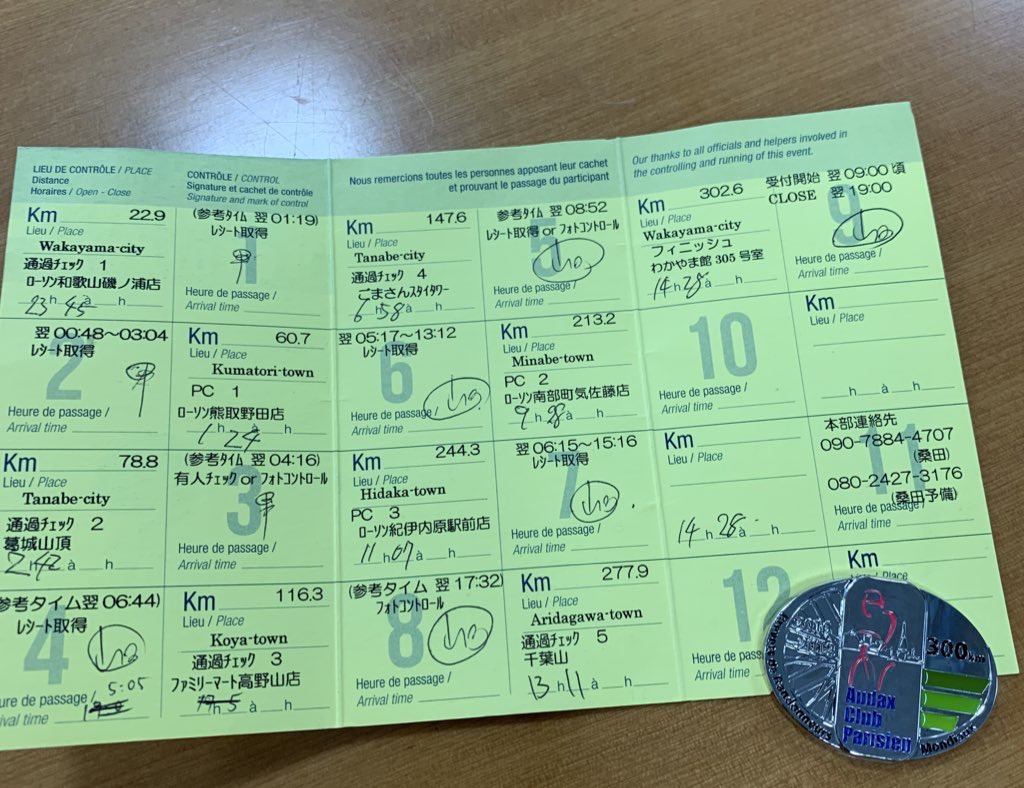 LIEU DE CONTRÔLE / PLACE
Distance
Horaires / Open - Close
CONTRÔLE / CONTROL
Signature et cachet de contrôle
Signature and mark of control
Nous remercions toutes les personnes apposant leur cachet
et prouvant le passage du participant
Our thanks to all officials and helpers involved in
the controlling and running of this event.
Km 22.9
Lieu / Place
Wakayama-city
通過チェック 1
ローソン和歌山磯ノ浦店
23 45 à h
1
(参考タイム 翌 01:19)
レシート取得
Heure de passage /
Arrival time
Km 147.6
Lieu / Place
Tanabe-city
通過チェック 4
ごまさんスタイタワー
6 h 58 à h
5
参考タイム 翌 08:52
レシート取得 or フォトコントロール
Heure de passage /
Arrival time
Km 302.6
Lieu / Place
Wakayama-city
フィニッシュ
わかやま館 305 号室
14 28 à h
9
受付開始 翌 09:00 頃
CLOSE 翌 19:00
Heure de passage /
Arrival time
2
翌 00:48～03:04
レシート取得
Heure de passage /
Arrival time
Km 60.7
Lieu / Place
Kumatori-town
PC 1
ローソン熊取野田店
1 h 24 h
6
翌 05:17～13:12
レシート取得
Heure de passage /
Arrival time
Km 213.2
Lieu / Place
Minabe-town
PC 2
ローソン南部町気佐藤店
9 h 28 à h
10
Km
Lieu / Place
h à h
Km 78.8
Lieu / Place
Tanabe-city
通過チェック 2
葛城山頂
2 h 42 à h
3
(参考タイム 翌 04:16)
有人チェック or フォトコントロール
Heure de passage /
Arrival time
Km 244.3
Lieu / Place
Hidaka-town
PC 3
ローソン紀伊内原駅前店
11 h 07 à h
7
翌 06:15～15:16
レシート取得
Heure de passage /
Arrival time
Km
Lieu / Place
14 h 28 à h
11
本部連絡先
090-7884-4707
(桑田)
080-2427-3176
(桑田予備)
Heure de passage /
Arrival time
4
参考タイム翌 06:44)
レシート取得
Heure de passage /
Arrival time
5:05
Km 116.3
Lieu / Place
Koya-town
通過チェック 3
ファミリーマート高野山店
h 5 à h
8
(参考タイム 翌 17:32)
フォトコントロール
Heure de passage /
Arrival time
Km 277.9
Lieu / Place
Aridagawa-town
通過チェック 5
千葉山
13 h 11 à h
12
Heure de pass
Arrival time
Km
Lieu / Place
300km
Audax
Club
Parisien
Randonneurs
Mondiaux